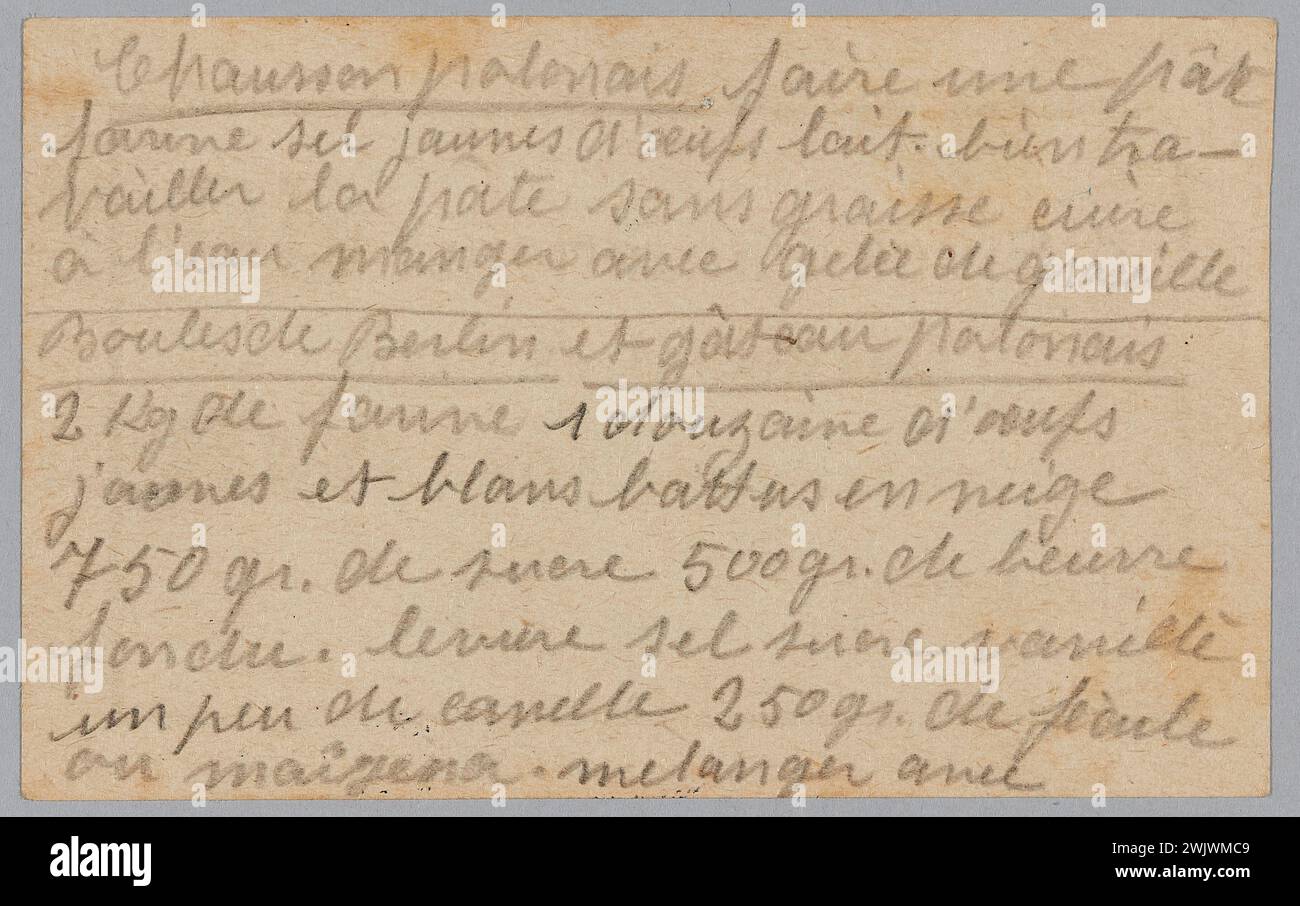 Chausson polonais. faire une pâte
farine sel jaunes d'œufs lait. bien tra-
vailler la pâte sans graisse cuire
à l'eau manger avec gelée de groseille
Boules de Berlin et gâteau polonais
2 Kg de farine 1 douzaine d'œufs
jaunes et blans battus en neige
750 gr. de sucre 500 gr. de beurre
fondu. levure sel sucre vanillé
un peu de canelle 250 gr. de fécule
ou maïzena. melanger avec
alamy
Image ID: 2WJWMC9
www.alamy.com